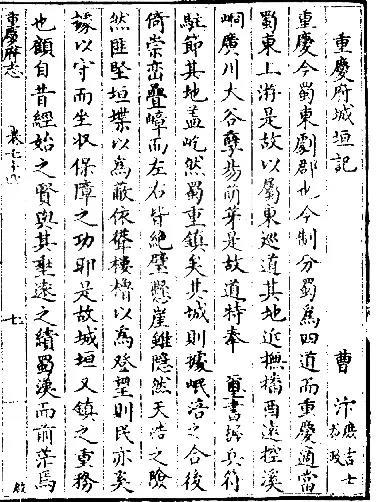 重慶府城垣記 曹汴 庶吉士
重慶今蜀東劇郡也今制分蜀為四道而重慶適當
蜀東上游是故以屬東巡道其地近撫播酉遠控溪
峒廣川大谷孽易萠芽是故道特奉 璽書握兵符
駐節其地蓋屹然蜀重鎮矣其城則據岷涪之合後
倚崇巒疊嶂而左右皆絕壁懸崖雖隱然天浩之險
然匪堅垣堞以為蔽依聳樓櫓以為登望則民亦奚
以守而坐收保障之功耶是故城垣又鎮之重務
也顧自昔經始之賢與其遠之績蜀漢而前焉
重慶府志
七